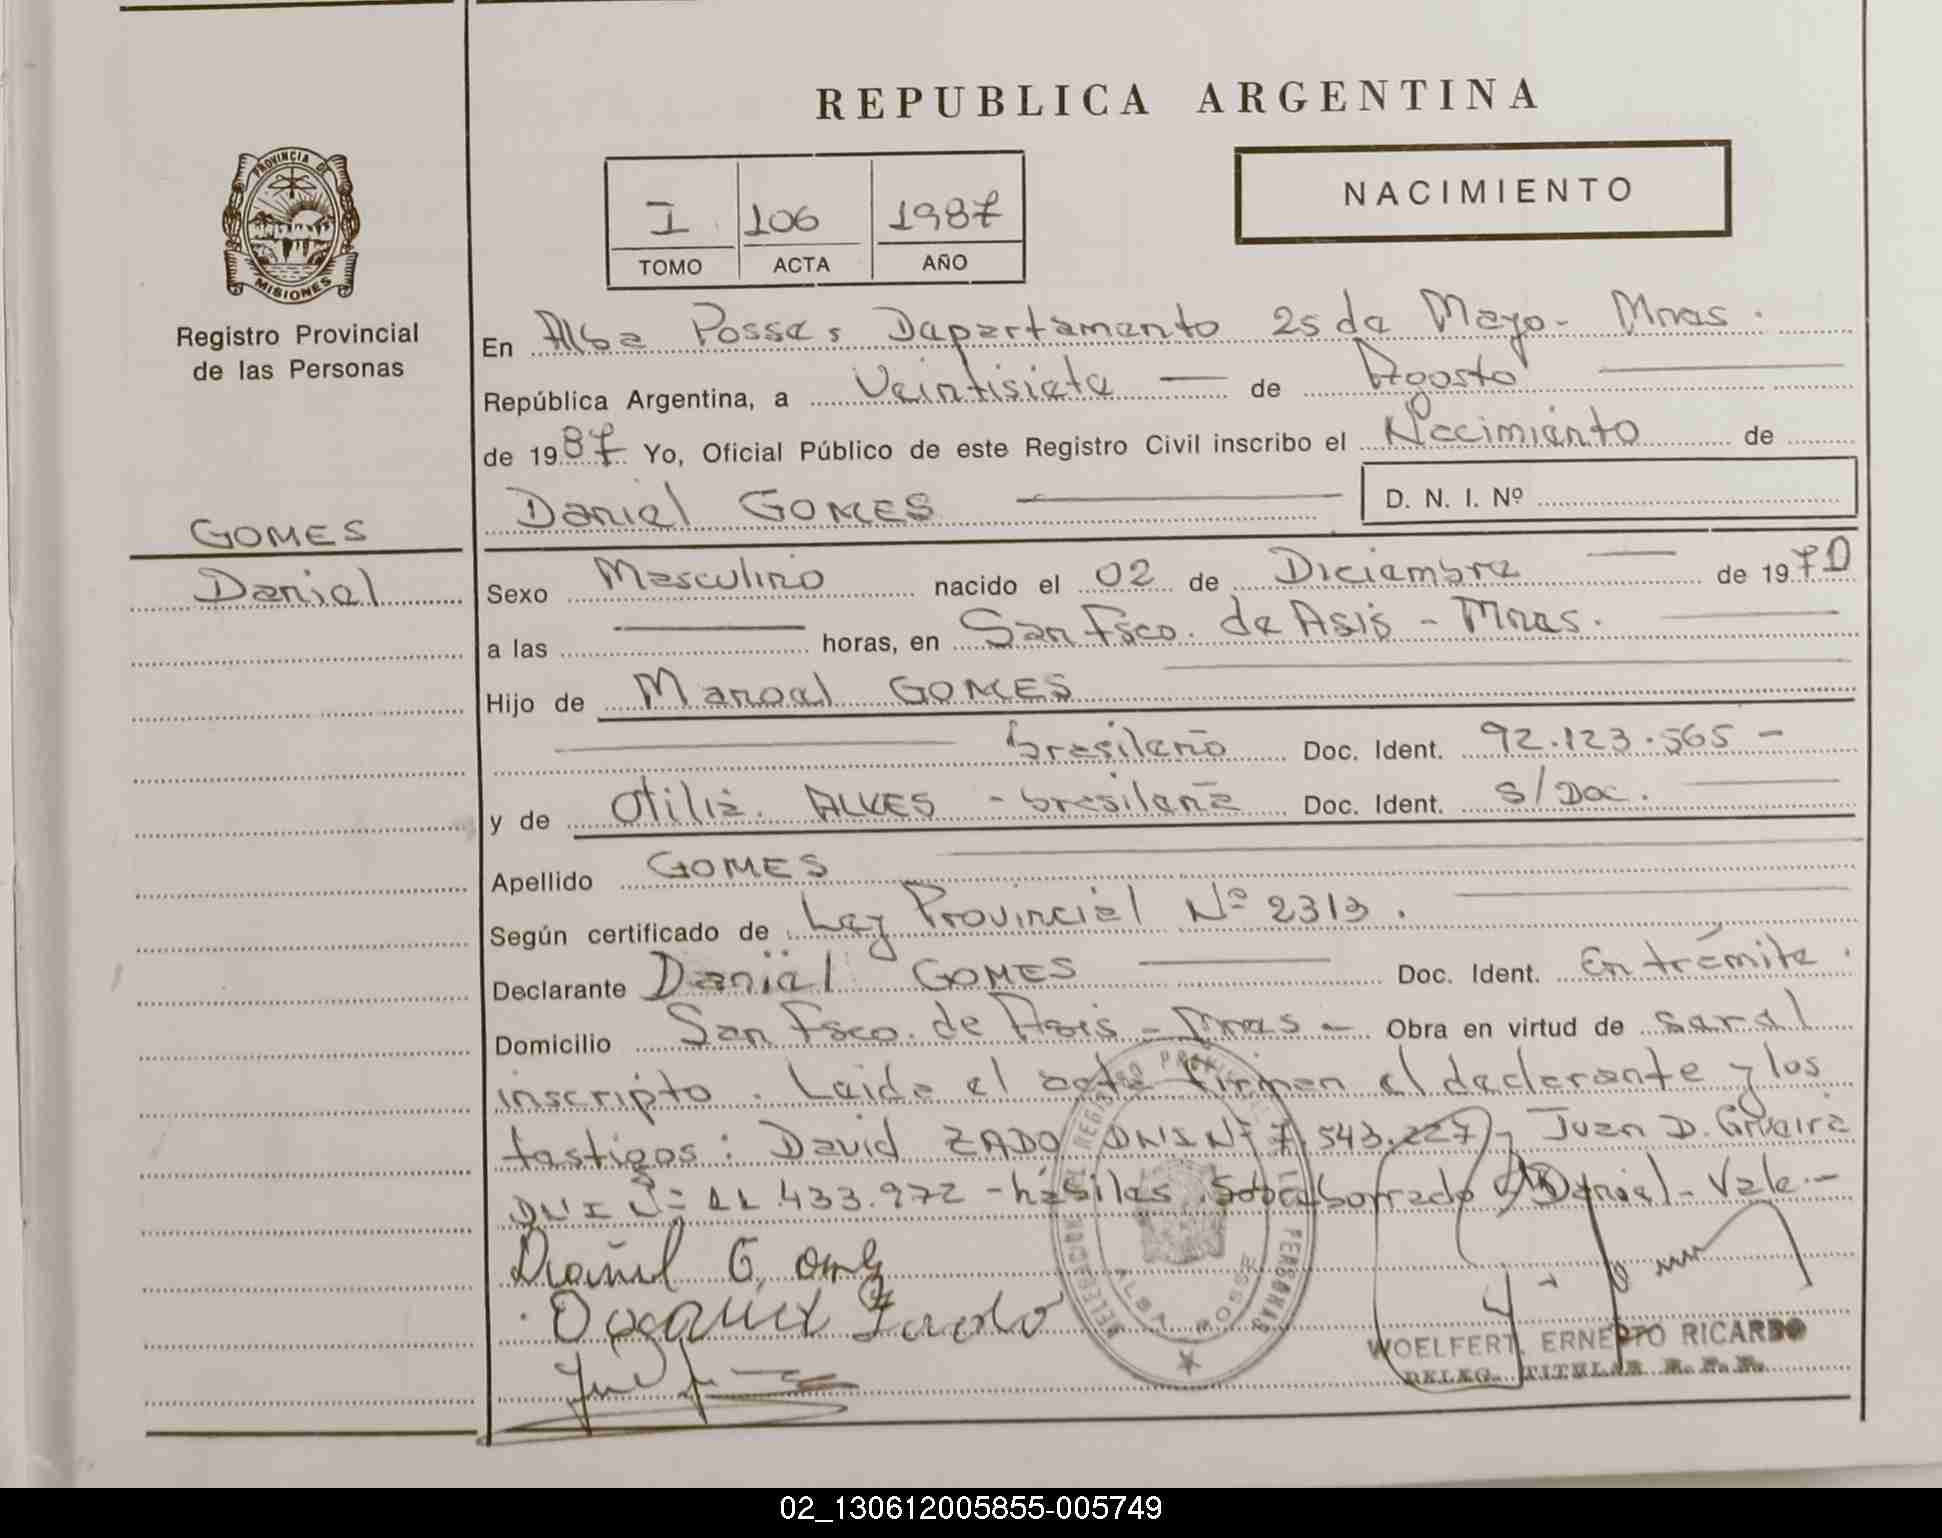 REPUBLICA ARGENTINA
PROVINCIA DE
MISIONES
Registro Provincial
de las Personas
I 106 1987
TOMO ACTA AÑO
NACIMIENTO
En Alba Posse, Departamento 25 de Mayo - Mnes.
República Argentina, a Veintisiete de Agosto
de 1987 Yo, Oficial Público de este Registro Civil inscribo el Nacimiento de
Daniel GOMES D. N. I. Nº
GOMES
Daniel
Sexo Masculino nacido el 02 de Diciembre de 1970
a las horas, en San Fsco. de Asis - Mnes.
Hijo de Manoel GOMES
brasileño Doc. Ident. 92.123.565 -
y de Otilia ALVES - brasileña Doc. Ident. S/Doc.
Apellido GOMES
Según certificado de Ley Provincial Nº 2313.
Declarante Daniel GOMES Doc. Ident. En trámite.
Domicilio San Fsco. de Asis - Mnes - Obra en virtud de ser el
inscripto. Leida el acta firman el declarante y los
testigos: David ZADO DNI Nº 7.543.227 y Juan D.
DNI Nº 11.433.972 - hábiles. Sobreborrado Daniel - Vale -
WOELFERT, ERNESTO RICARDO
DELEG. TITULAR R. P. P.
REGISTRO PROVINCIAL DE LAS PERSONAS
ALBA POSSE
02_130612005855-005749